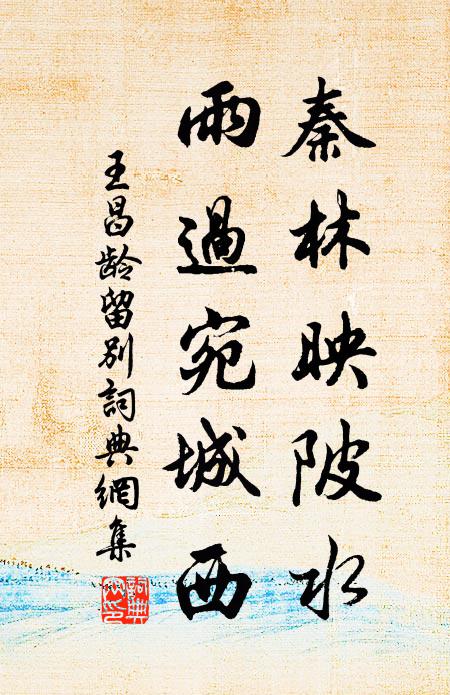 秦林映陂水
雨過宛城西
王昌龄留別詞典網集